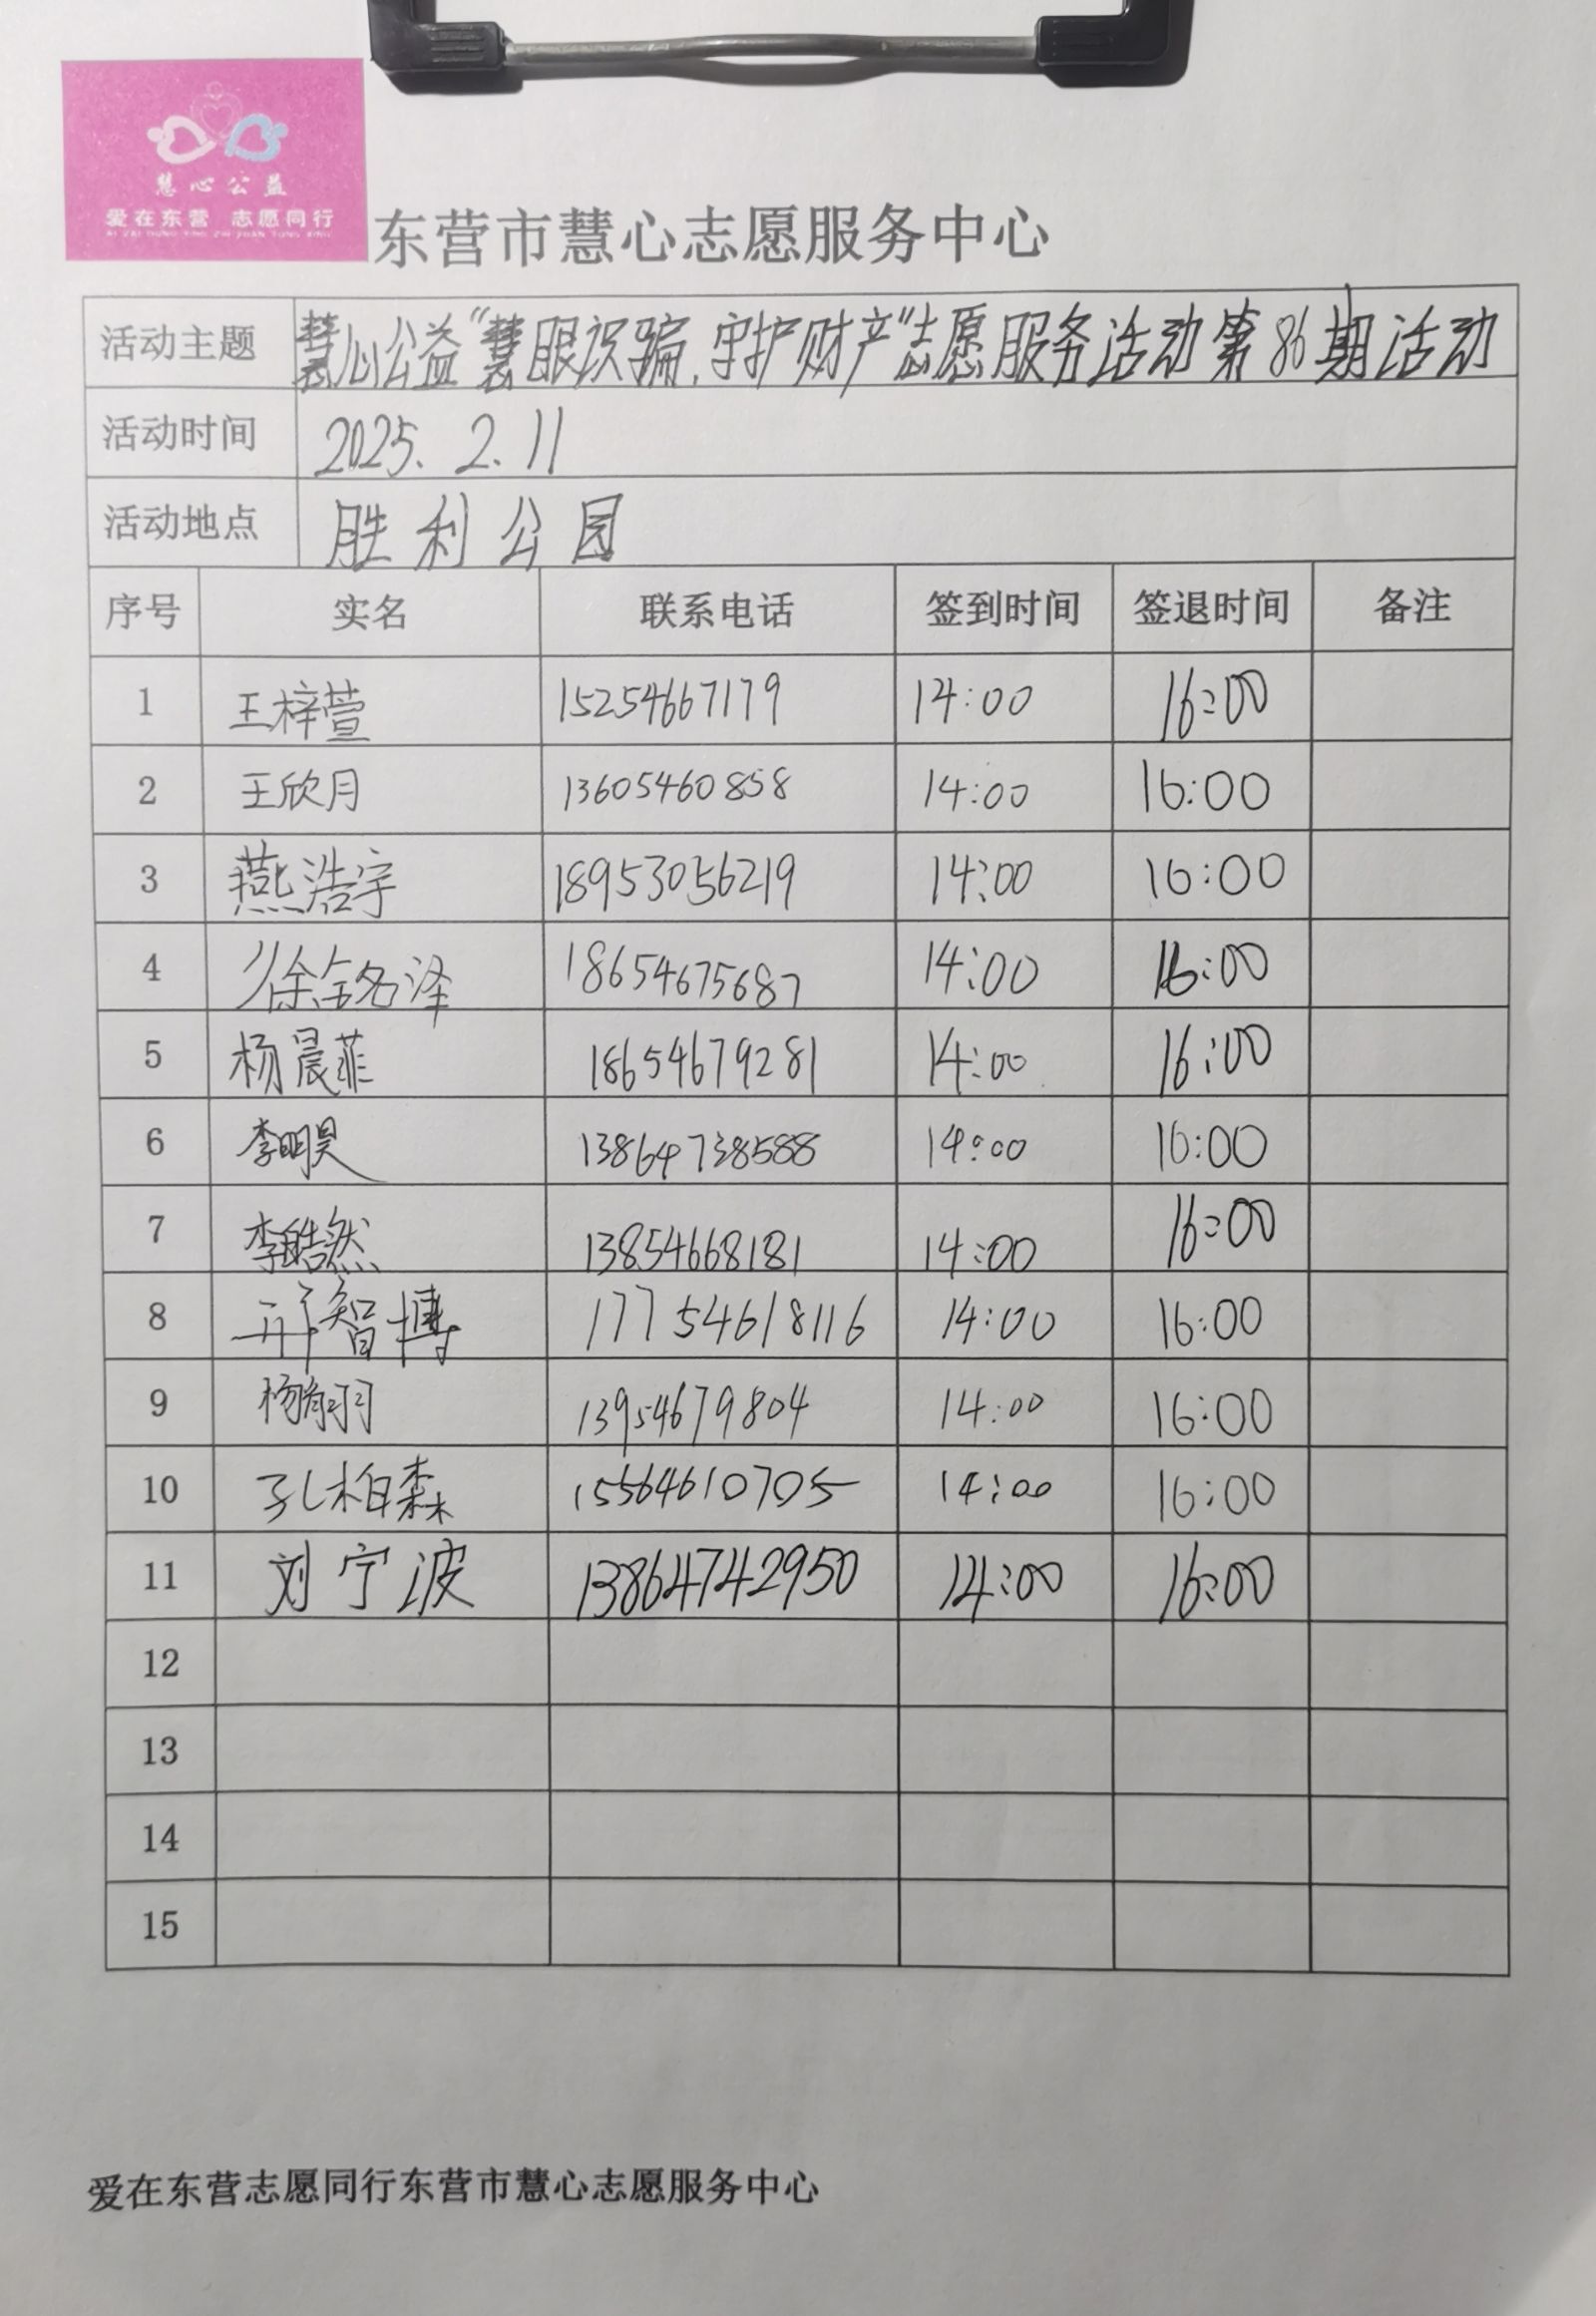 慧心公益
爱在东营 志愿同行
AI ZAI DONG YING ZHI YUAN TONG XING
东营市慧心志愿服务中心
活动主题 慧心公益“慧眼识骗、守护财产”志愿服务活动第86期活动
活动时间 2025.2.11
活动地点 胜利公园
序号 实名 联系电话 签到时间 签退时间 备注
1 王梓萱 15254667179 14:00 16:00
2 王欣月 13605460858 14:00 16:00
3 燕浩宇 18953056219 14:00 16:00
4 徐铭泽 18654675687 14:00 16:00
5 杨晨菲 18654679281 14:00 16:00
6 李明昊 13864738588 14:00 16:00
7 李皓然 13854668181 14:00 16:00
8 智博 17754618116 14:00 16:00
9 杨 13954679804 14:00 16:00
10 孔柏森 15564610705 14:00 16:00
11 刘宁波 13864742950 14:00 16:00
12
13
14
15
爱在东营志愿同行东营市慧心志愿服务中心